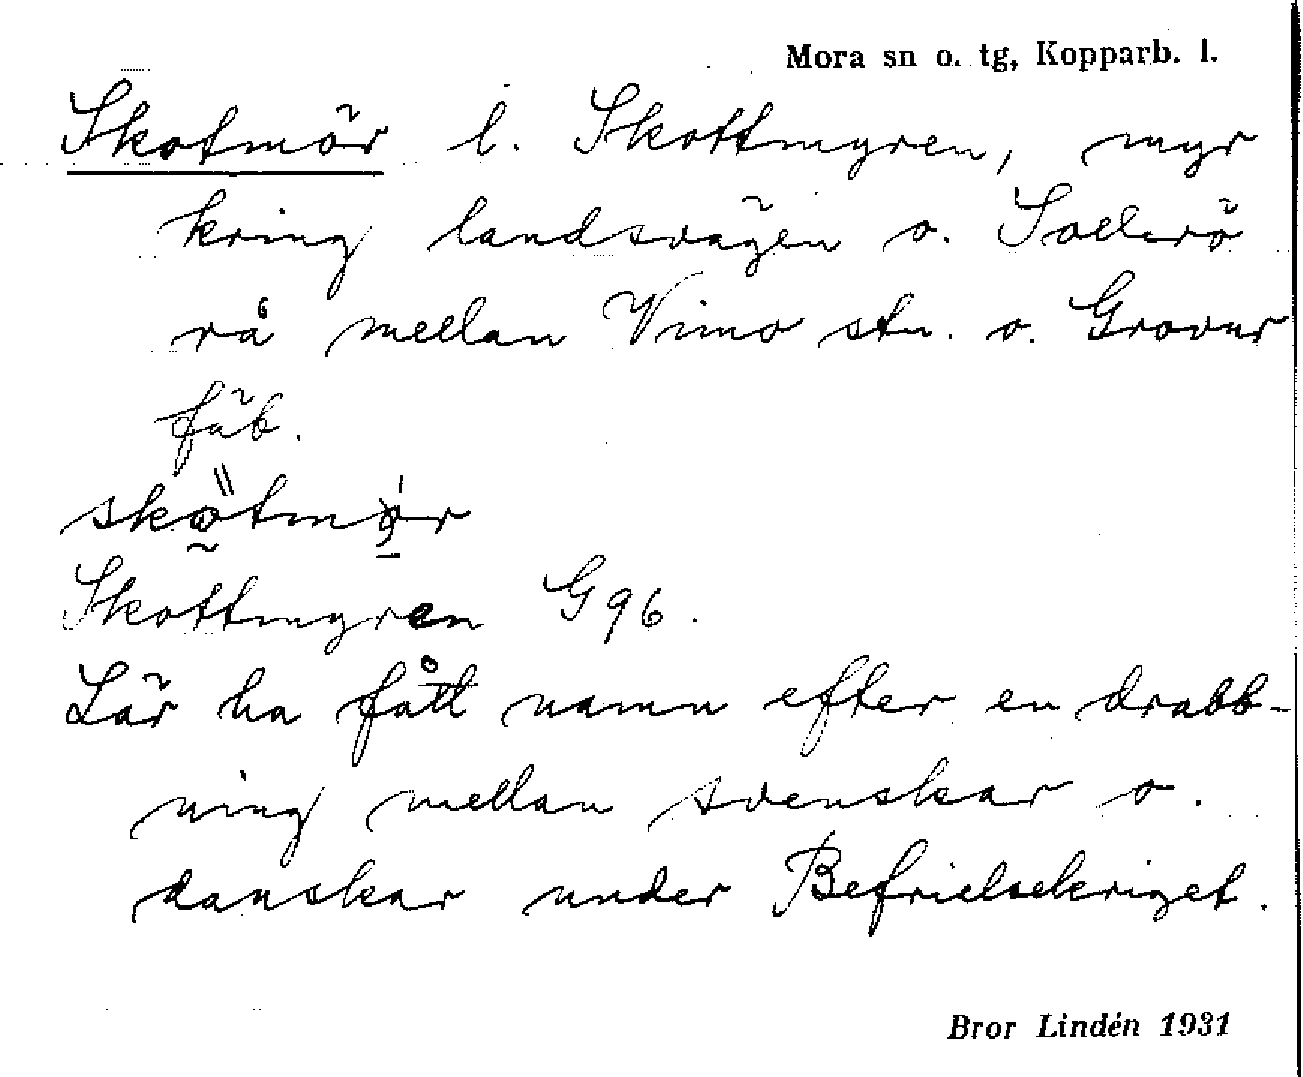 Mora sn o. tg, Kopparb. l.
Skotmör l. Skottmyren, myr
kring landsvägen o. Sollerö
rå mellan Vimo stn. o. Grovur
fäb.
skotmör
Skottmyren G96.
Lär ha fått namn efter en drabb-
ning mellan svenskar o.
danskar under Befrielsekriget.
Bror Lindén 1931